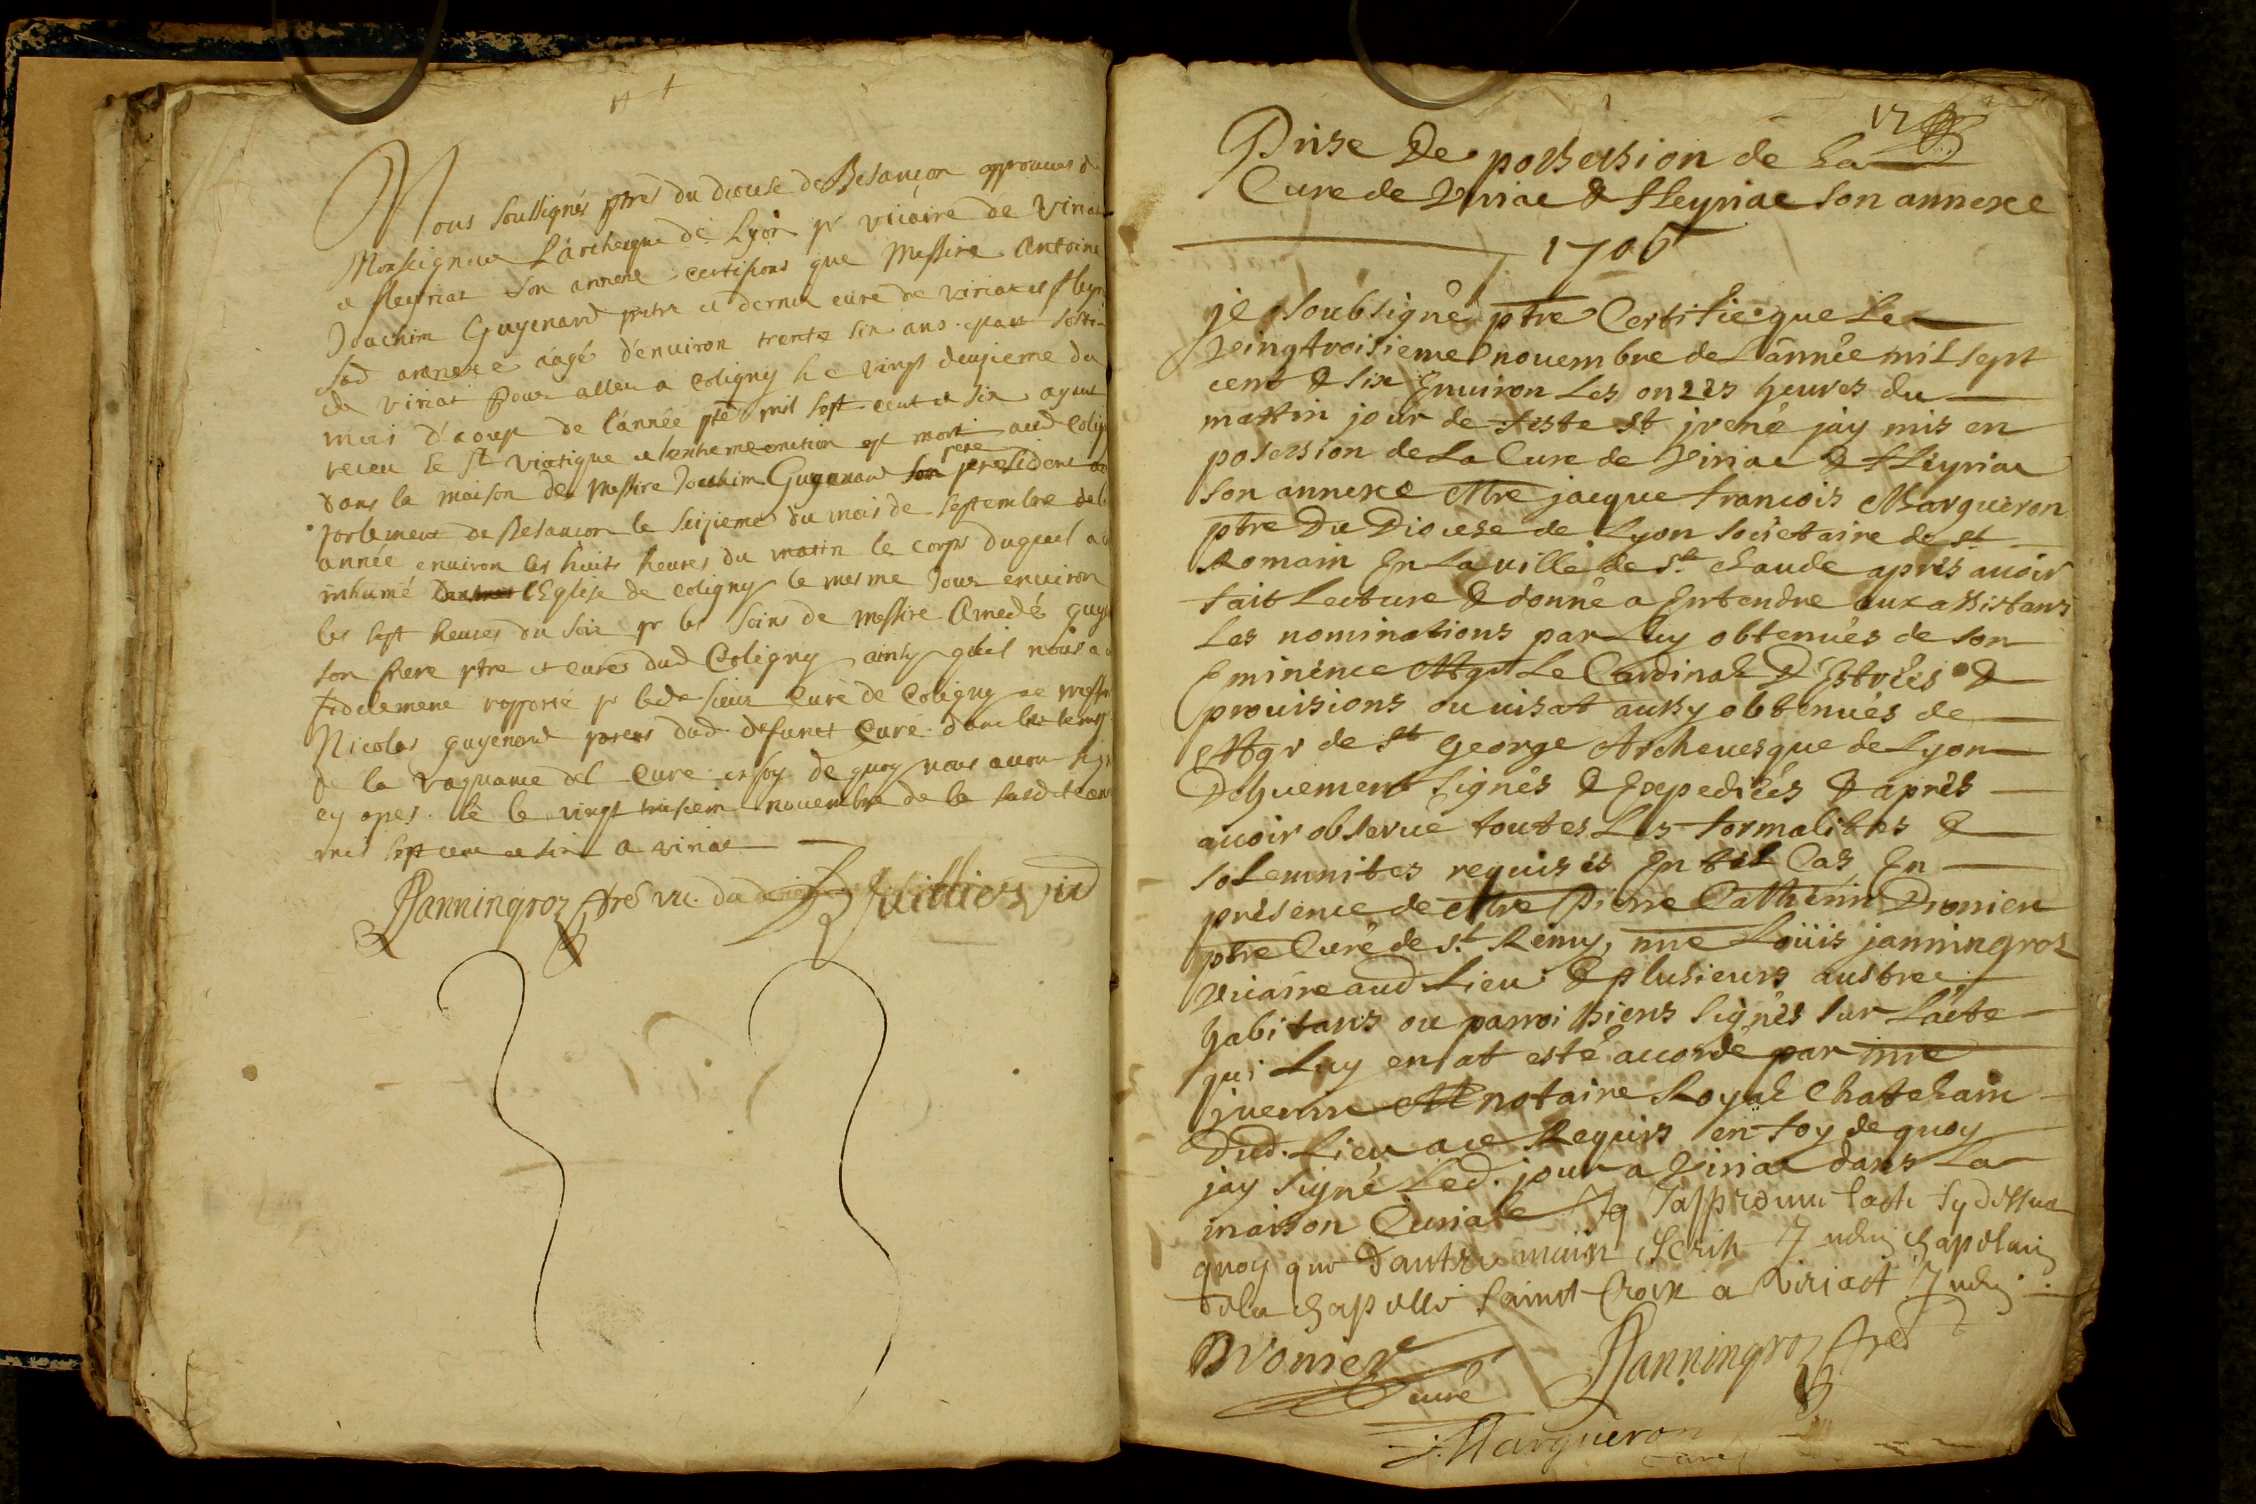 Nous soussignés ptres du diocese de Besançon approuvés de
Monseigneur L'archevque de Lyon pr vicaire de Viriac
et fleyriat son annexe certifions que Messire Antoine
Joachim Guyenard prestre et dernier curé de viriac et fleyri
sad annexe aagé d'environ trente six ans estant sorti
de viriat pour aller a Coligny le vingt deuzieme du
mois d'aoust de l'année pnte mil sept cent et six ayant
receu le st viatique et lextreme onction est mort aud Colig
dans la maison de Messire Joachim Guyenard son pere president au
parlement de Besançon le seizieme du mois de septembre de l
année environ les huits heures du matin le corps duquel a
inhumé l'Eglise de coligny le mesme jour environ
les sept heures du soir pr les soins de Messire Amedé guye
son frere ptre et curé dud Coligny ainsy qu'il nous a
fidelement rapporté pr led sieur Curé de Coligny et messi
Nicolas guyenard dud defunct Curé
de la vaquance del Cure en foy de quoy nous avons sig
cy apres le vingt troisiem novembre de la susdit ann
mil sept cent et six a viriac
Janningroz ptre vic. du Juilliers vic
Prise De possession de La
Cure de Viriac & fleyriac son annexe
1706
je soubsigné ptre Certifie que Le
veingtroisieme novembre de L'année mil sept
cent & six Environ Les onzes heures du
mattin jour de feste st jrené jay mis en
posession de La Cure de Viriac & fleyriac
son annexe Mre jacque francois Margueron
ptre Du Diocese de Lyon societaire de st
Romain En La ville de st Claude aprés avoir
fait Lecture & donné a Entendre aux assistans
Les nominations par Luy obtenués de son
Eminence Mgr Le Cardinal D'Estrées &
provisions ou visat aussy obtenués de
Mgr de st george Archevesque de Lyon
Dehuement signés & Expediées & aprés
avoir observué toutes Les formalites &
solemnites requisés En tel Cas En
présence de Mre Pierre Cathérin Dronier
ptre Curé de st Remy, mre Loüis janningros
vicaire aud Lieu & plusieurs austre
habitans ou parroissiens signés sur L'acte
qui Luy en at esté accordé par mre
notaire Royal Chatelain
Dud. Lieu a ce Requis en foy de quoy
jay signé Led. jour a Viriac dans La
maison Curiale Japreuuve Lacte sy dessus
quoy que d'autre main escrit chapelain
de la chapelle sainct Croix a Viriact
Dronier Janningroz ptre
Curé
Margueron
curé